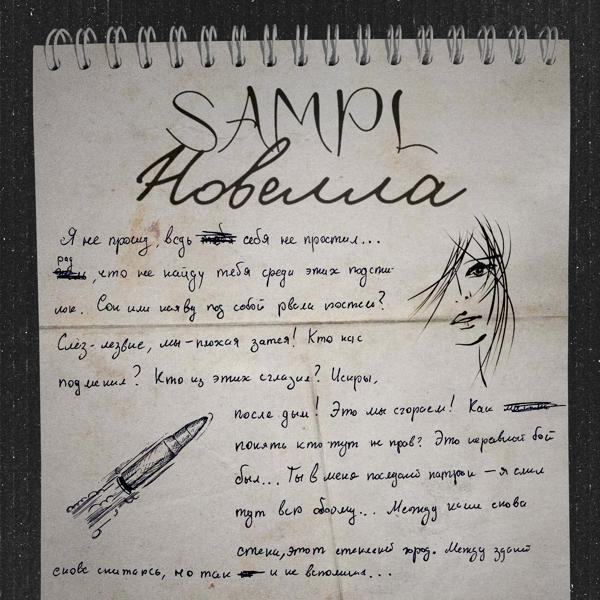 SAMPL
Новелла
Я не прошу, ведь себя не простил...
рад
, что не найду тебя среди этих подсти-
лок. Сон или наяву под собой рвала постели?
Слёз-лезвие, мы-плохая затея! Кто нас
подменил? Кто из этих сглазил? Искры,
после дым! Это мы сгораем! Как
понять кто тут не прав? Это неравный бой
был... Ты в меня последний патрон - я слил
тут всю обойму... Между нами снова
стена, этот стеклянный город. Между зданий
снова скитаюсь, но так и не вспомнил...